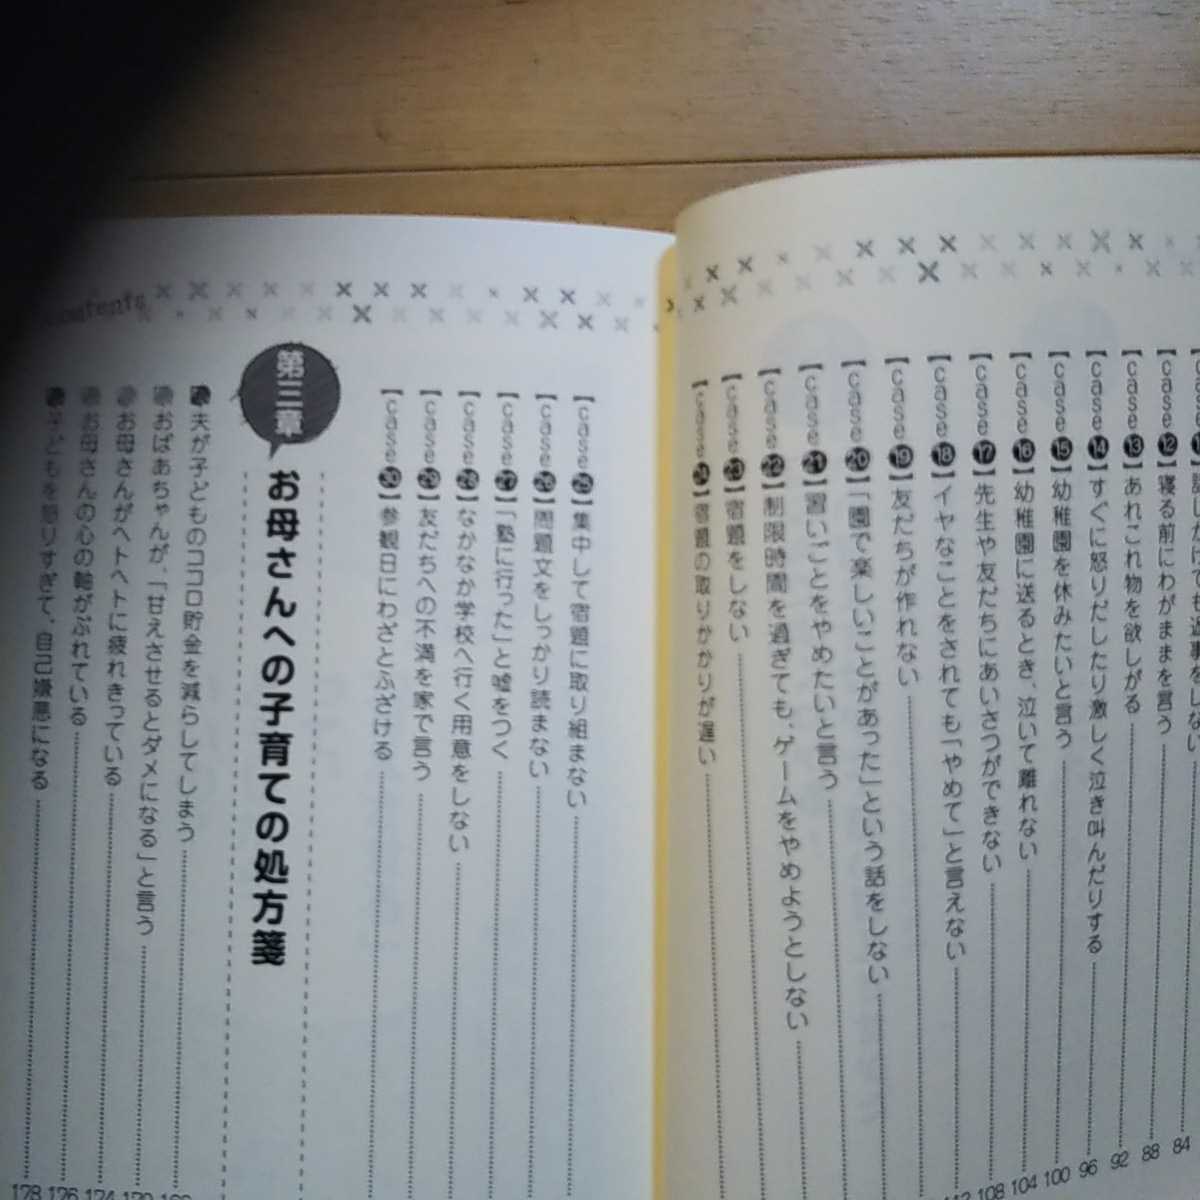 【case⑫】寝る前にわがままを言う 88
【case⑬】あれこれ物を欲しがる 92
【case⑭】すぐに怒りだしたり激しく泣き叫んだりする 96
【case⑮】幼稚園を休みたいと言う 100
【case⑯】幼稚園に送るとき、泣いて離れない 104
【case⑰】先生や友だちにあいさつができない 108
【case⑱】イヤなことをされても「やめて」と言えない
【case⑲】友だちが作れない
【case⑳】「園で楽しいことがあった」という話をしない
【case㉑】習いごとをやめたいと言う
【case㉒】制限時間を過ぎても、ゲームをやめようとしない
【case㉓】宿題をしない
【case㉔】宿題の取りかかりが遅い
contents
【case㉕】集中して宿題に取り組まない
【case㉖】問題文をしっかり読まない
【case㉗】「塾に行った」と嘘をつく
【case㉘】なかなか学校へ行く用意をしない
【case㉙】友だちへの不満を家で言う
【case㉚】参観日にわざとふざける
第三章
お母さんへの子育ての処方箋
夫が子どものココロ貯金を減らしてしまう
おばあちゃんが、「甘えさせるとダメになる」と言う
お母さんがヘトヘトに疲れきっている 174
お母さんの心の軸がぶれている 176
子どもを怒りすぎて、自己嫌悪になる 178